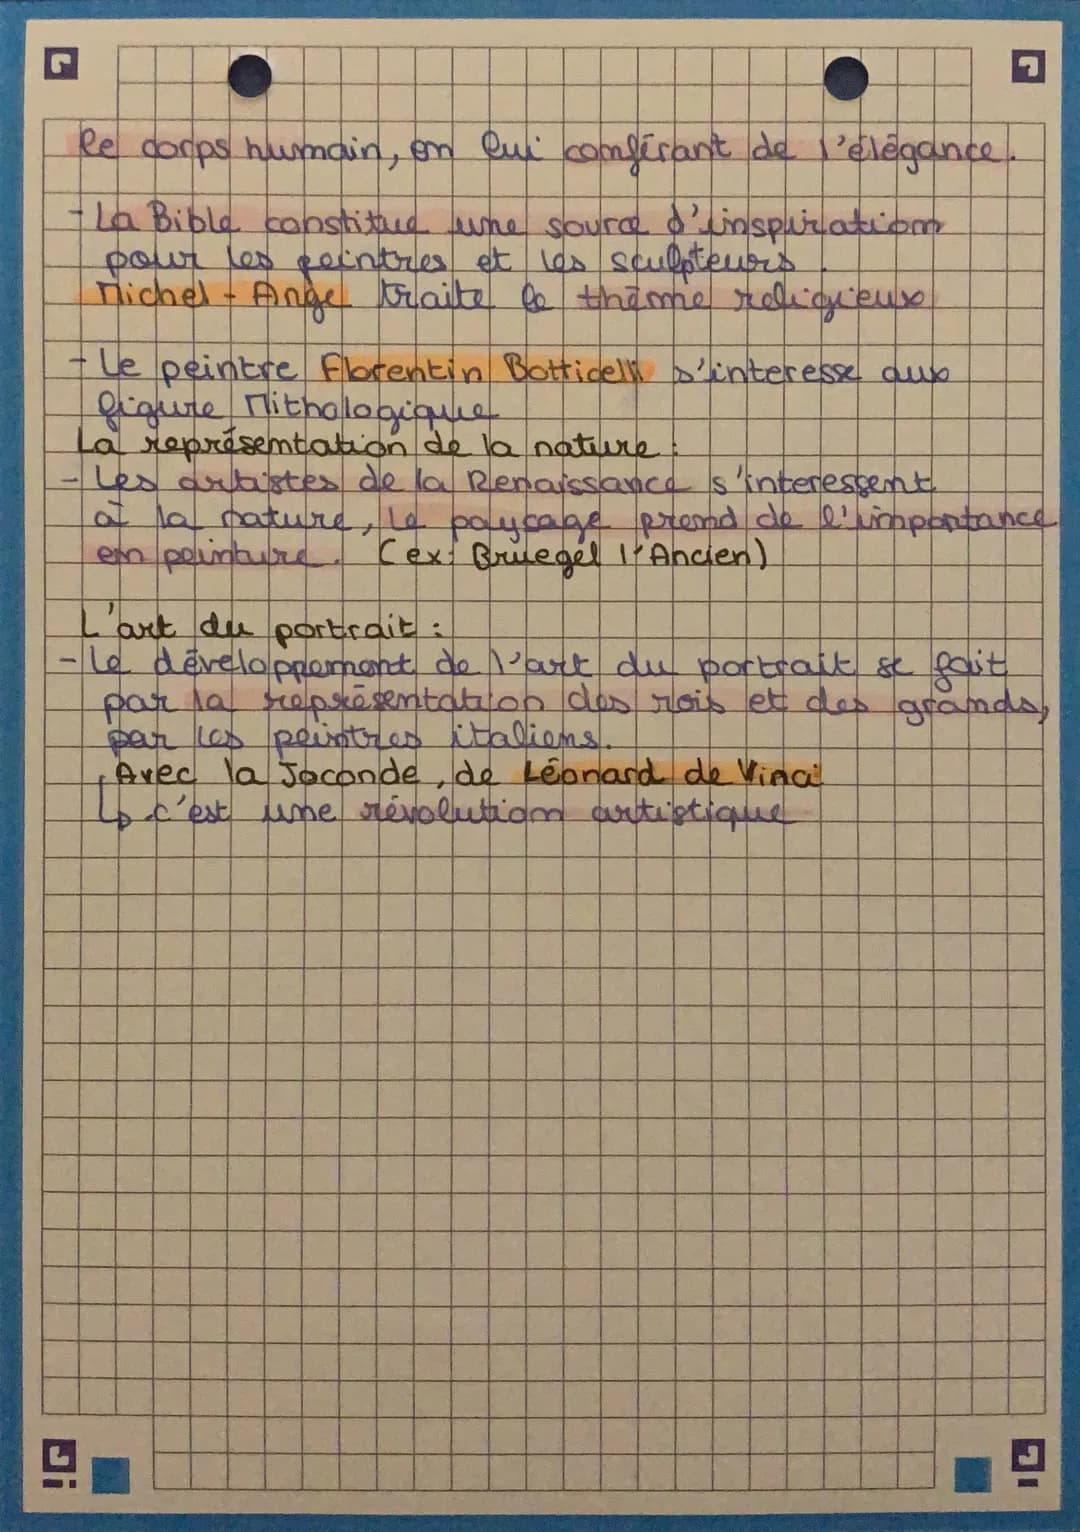 le corps humain, en lui conférant de l'élégance.
- La Bible constitue une source d'inspiration
pour les peintres et les sculpteurs.
Michel-Ange traite le thème religieux
- Le peintre Florentin Botticelli s'interesse aux
figure Mithologique
La représentation de la nature :
- Les artistes de la Renaissance s'interessent
à la nature, le paysage prend de l'importance
en peinture. (ex: Bruegel l'Ancien)
L'art du portrait :
- Le développement de l'art du portrait se fait
par la représentation des rois et des grands,
par les peintres italiens.
Avec la Joconde, de Léonard de Vinci
↳ c'est une révolution artistique